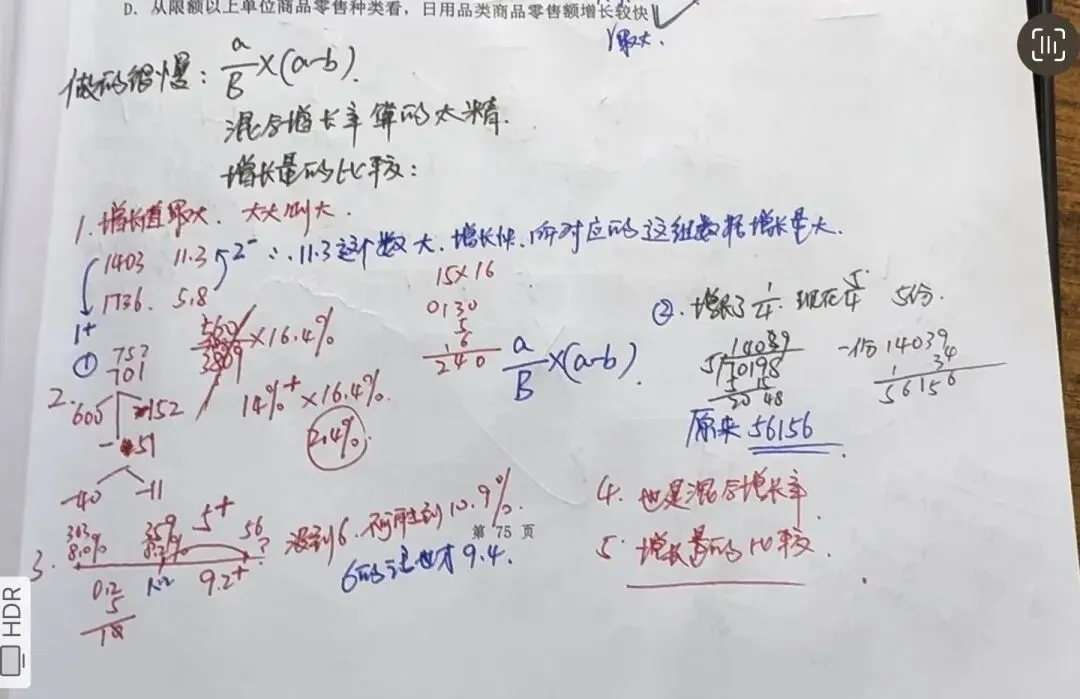 D. 从限额以上单位商品零售种类看，日用品类商品零售额增长较快
最大.
做的很慢: a/B×(a-b).
混合增长率算的太精.
增长量的比较:
1. 增长值最大. 大大则大.
1403 11.3 5 2⁻ ∴ 11.3这个数大. 增长快. 所对应的这组数据增长量大.
1736. 5.8
1+
15×16
0130
5
6
240
① 757
701
×16.4%
3809
14%⁺×16.4%.
2.4%
a/B×(a-b).
2. 600 152
-51
-40 -11
②. 增长了1/4. 现在5/4 5份.
14039
5 70198
5 15
20 48
一份 14039
1 34
56156
原来 56156
3. 363 359 5⁺ 56
8.0% 8.2% ?
没到6. 不可能到10.9%.
6的话也才9.4.
0.2 9.2⁺
5
18
第 75 页
4. 也是混合增长率.
5. 增长量的比较.
HDR